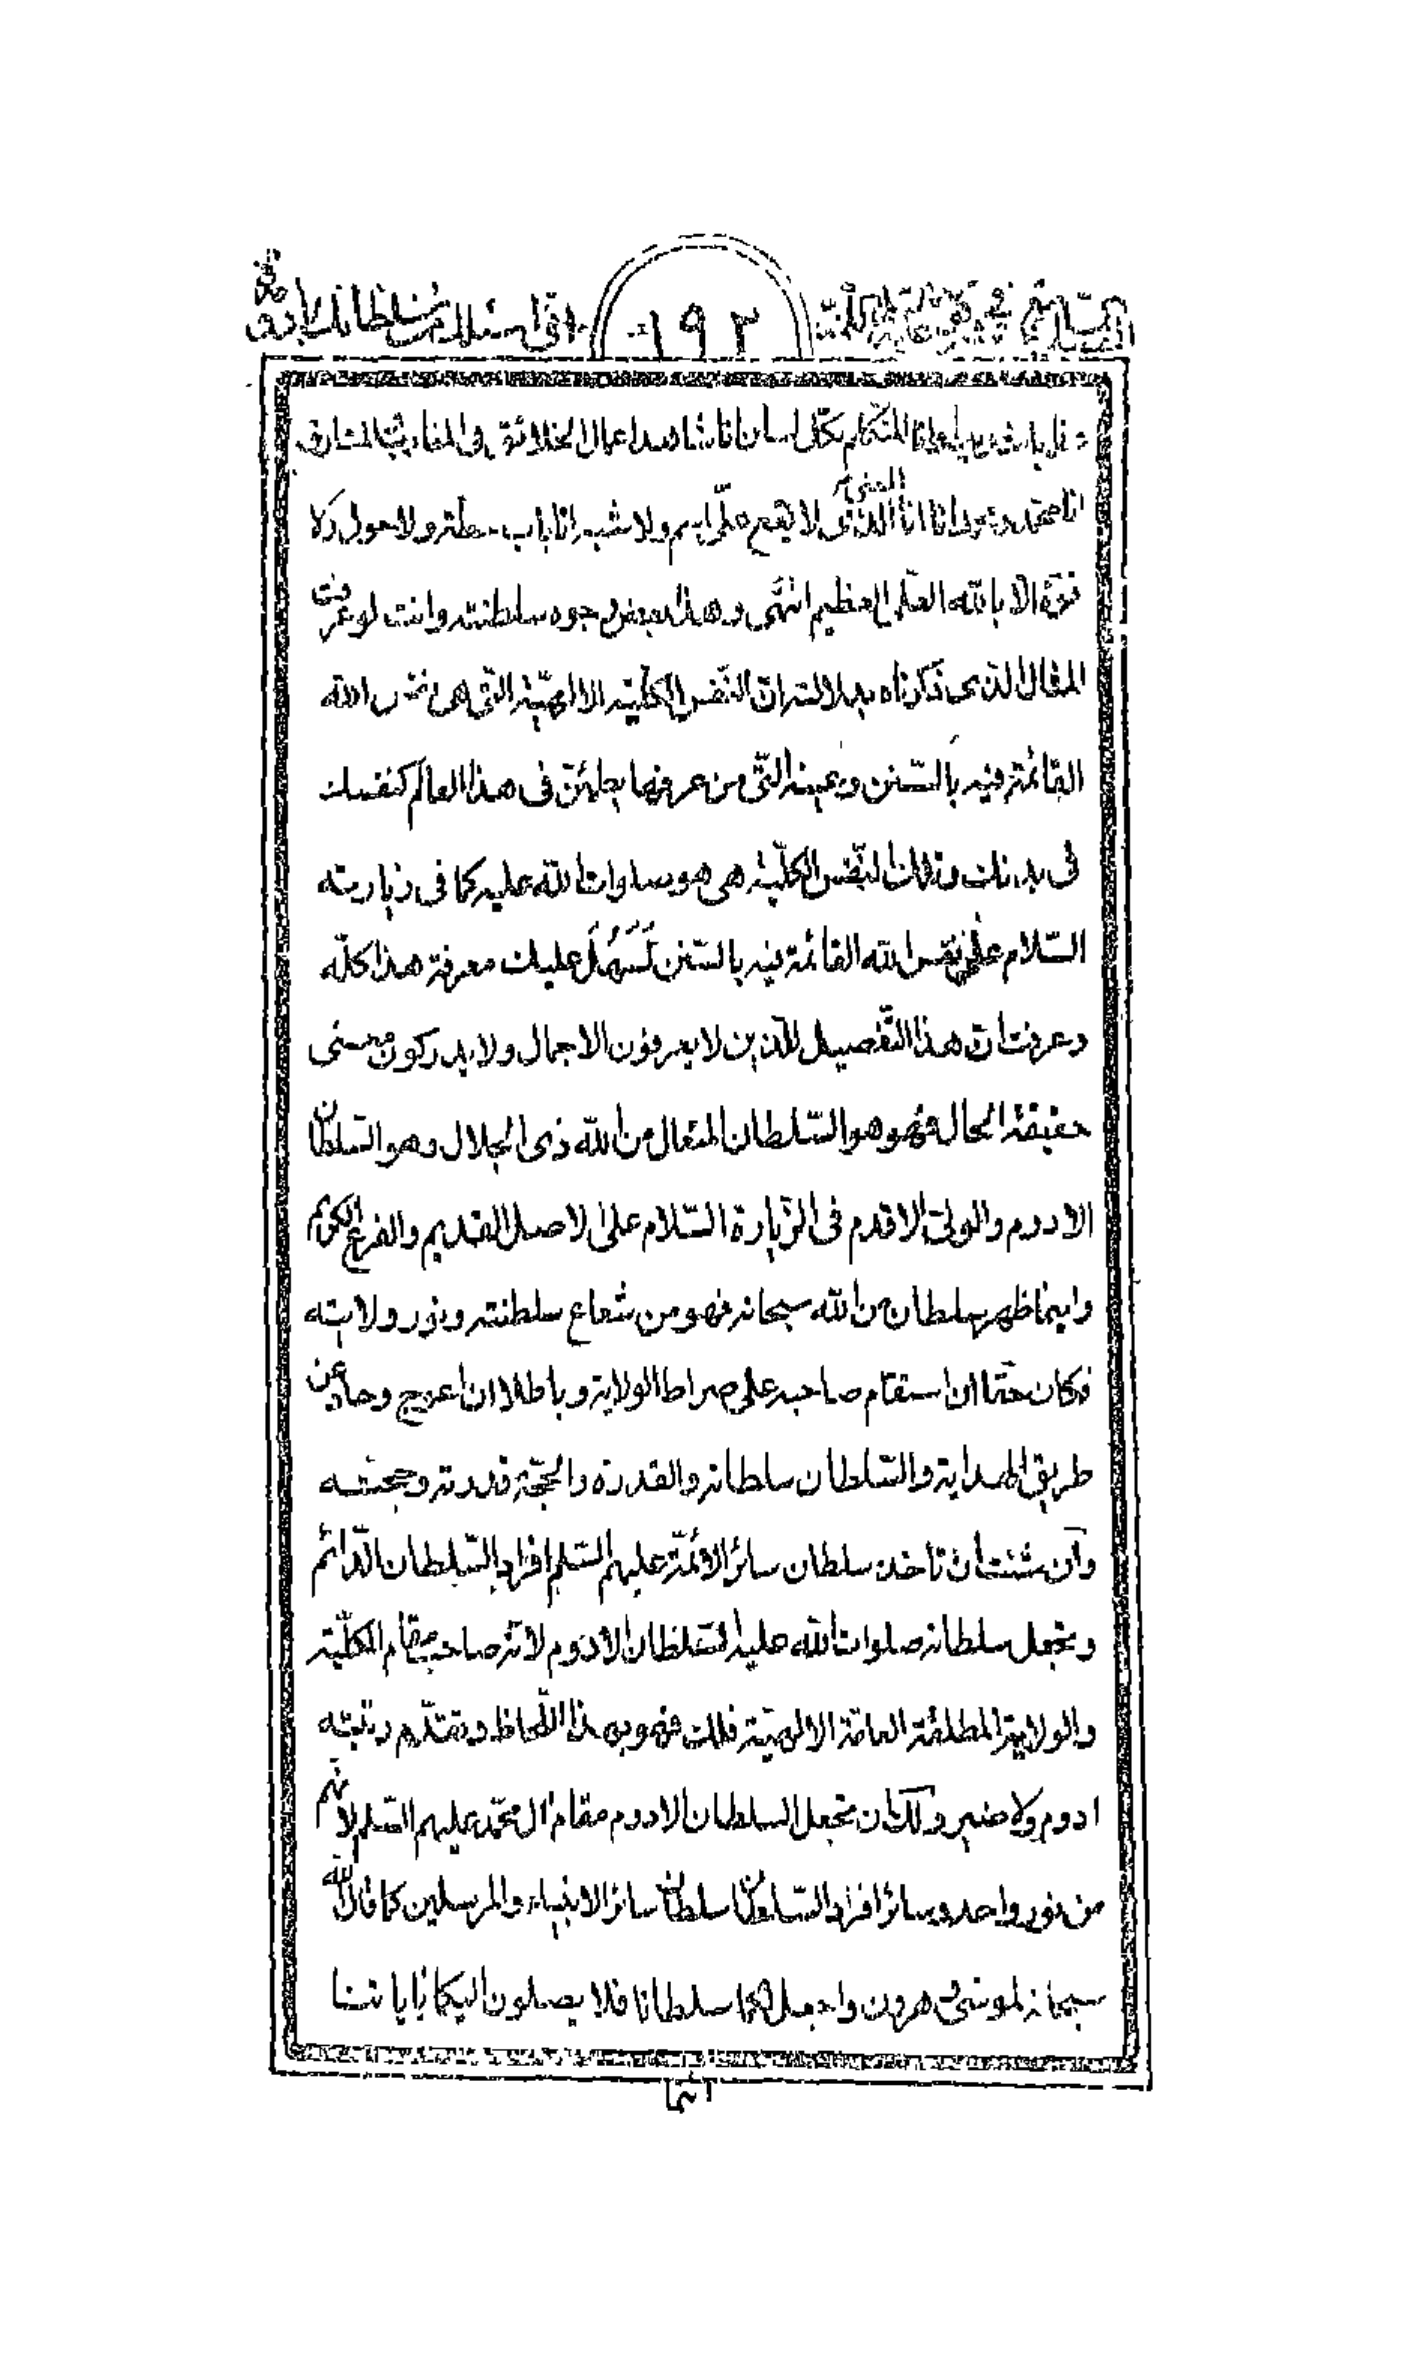 ١٩٢
انا المتكلم بكل لسان انا شاهد اعمال الخلائق فى المغارب والمشارق
انا محمد و محمد انا انا المعنى الذى لا يقع على اسم ولا شبه انا باب حطة ولا حول ولا
قوة الا بالله العلى العظيم انتهى وهذا بعض وجوه سلطنته وانت لو عرفت
المثال الذى ذكرناه بدلالته ان النفس الكلية الالهية التى هى نفس الله
القائمة فيه بالسنن وعينه التى من عرفها يطمئن فى هذا العالم كنفسك
فى بدنك وتلك النفس الكلية هى هو صلوات الله عليه كما فى زيارته
السلام على نفس الله القائمة فيه بالسنن تسهل عليك معرفة هذا كله
وعرفت ان هذا التفصيل للذين لا يعرفون الاجمال ولا يدركون معنى
حقيقة الحال فهو هو السلطان المتعال من الله ذى الجلال وهو السلطان
الادوم والولى الاقدم فى الزيارة السلام على الاصل القديم والفرع الكريم
واينما ظهر سلطان من الله سبحانه فهو من شعاع سلطنته ونور ولايته
فكان حقا ان استقام صاحبه على صراط الولاية وباطلا ان اعوج وحاد عن
طريق الهداية والسلطان سلطانه والقدرة والحجة قدرته وحجته
وان شئت ان تاخذ سلطان سائر الائمة عليهم السلم افراد السلطان الدائم
وتجعل سلطانه صلوات الله عليه السلطان الادوم لانه صاحب مقام الكلية
والولاية المطلقة العامة الالهية فلك فهو بهذا اللحاظ وتقدم رتبته
ادوم ولا ضير ولك ان تجعل السلطان الادوم مقام ال محمد عليهم السلم لانهم
من نور واحد وسائر افراد السلطان سلطان سائر الانبياء والمرسلين كما قال الله
سبحانه لموسى و هرون واجعل لكما سلطانا فلا يصلون اليكما باياتنا
انتما